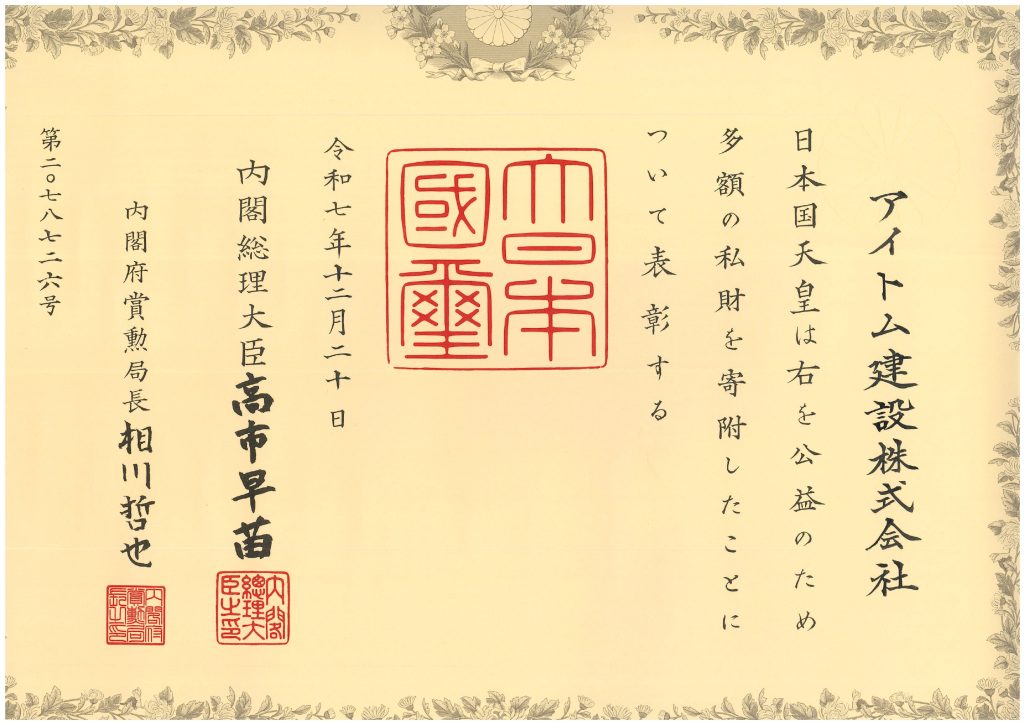 アイトム建設株式会社
日本国天皇は右を公益のため
多額の私財を寄附したことに
ついて表彰する
大日本國璽
令和七年十二月二十日
内閣総理大臣高市早苗
内閣總理大臣之印
内閣府賞勲局長相川哲也
内閣府賞勳局長之印
第二〇七八七二六号